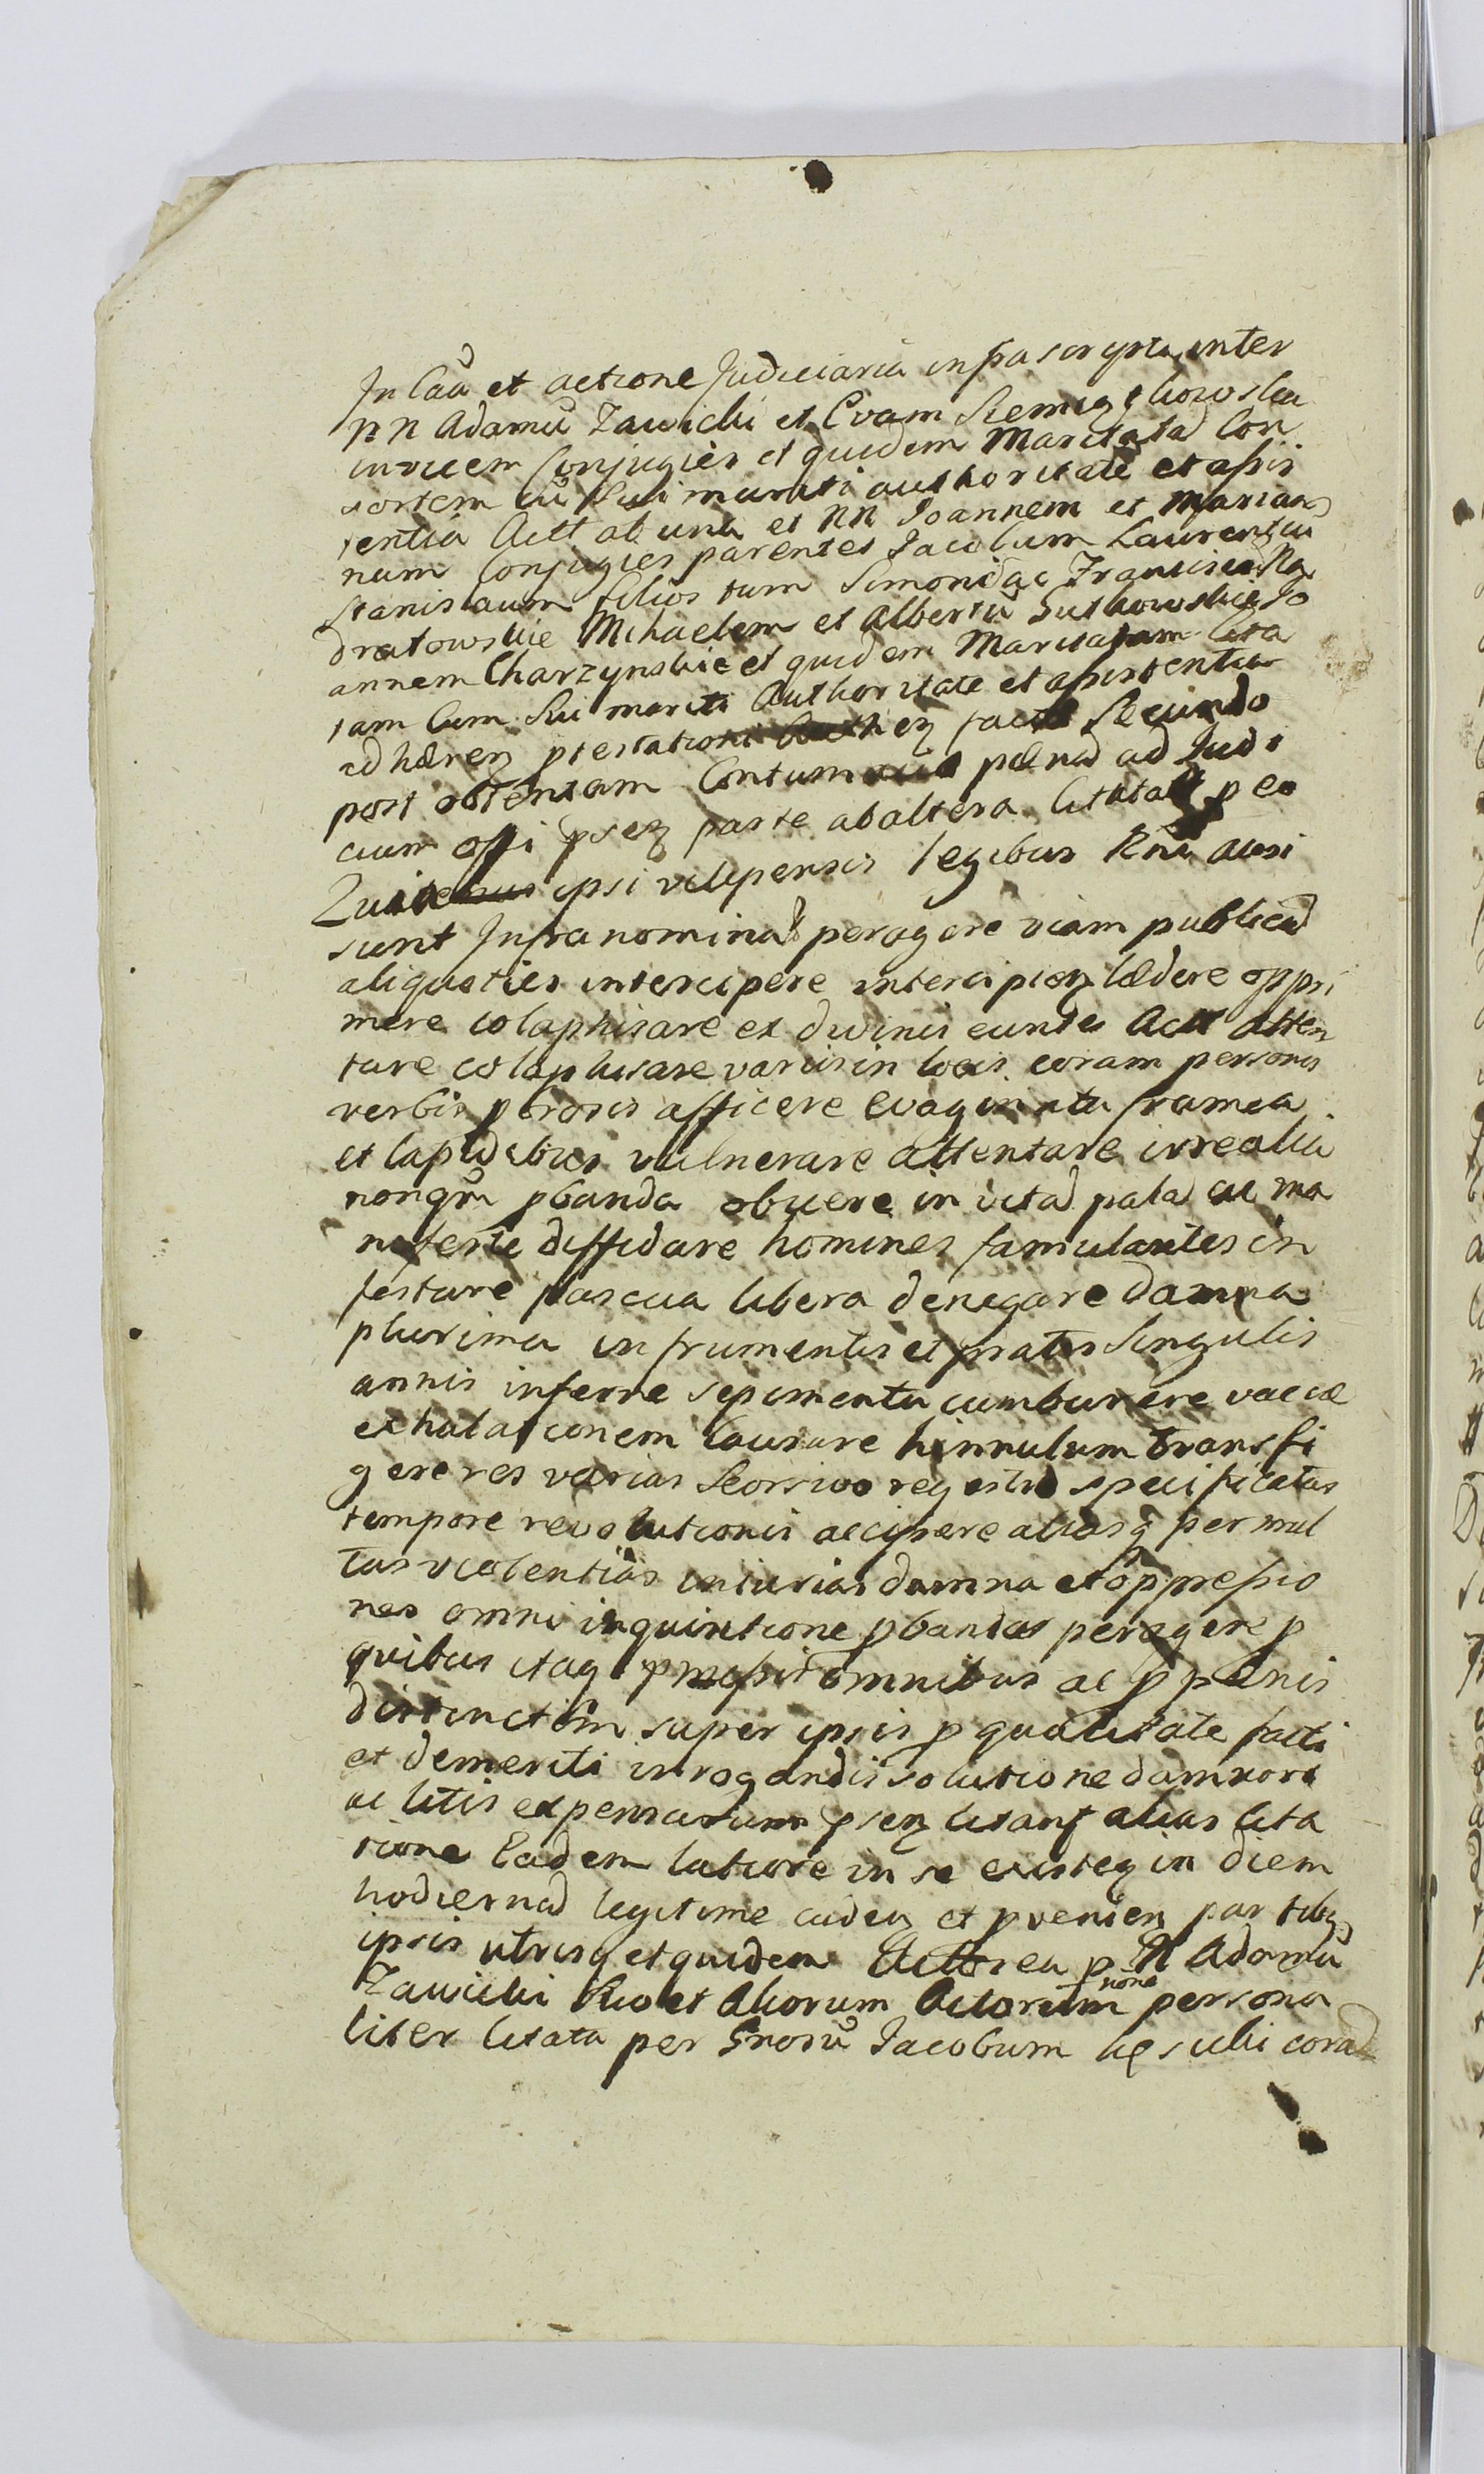 In Caũ et actione Judiciaria infrascripta inter
NN Adamũ Zawicki et Evam
invicem Conjuges et quidem Maritatã Con
sortem cũ sui mariti authoritate et assis
tentia Actt ab una et NN Joannem et Marian
nam Conjuges parentes Jacobum Laurentiũ
Stanislaum filios tum Simonẽ ac Franciscũ Ra
dratowskie Mihaelem et Albertũ Sutkowskie Jo
annem Charzynskie et quidem Maritatam Cita
tam Cum Sui mariti Authoritate et assistentia
adhæreŋ ptestationi eŋ facta Secundo
post obtentam Contumacia pænã ad Judi
cium offi pseŋ parte ab altera Citatas p eo
Quia ipsi vilipensis legibus Rñi ausi
sunt Infranominat peragere viam publicã
aliquoties intercipere intercipieŋ lædere oppri
mere colaphisare ex divinis eundes Actt atten
tare colaphisare variis in locis coram personis
verbis pbrosis afficere evaginata framea
et lapidibus vulnerare attentare irrealia
nonqm pbanda obiicere in vitã palã ac ma
nifeste diffidare homines famulantes in
festare pascua libera denegare damna
plurima in frumentis et pratis Singulis
annis inferre sepimenta cumburere vaccæ
exhalationem Causare hinnulum transfi
gere res varias Seorsivo regestro specificatas
tempore revolutionis accipere aliasq per mul
tas violentias iniurias damna et oppressio
nes omni inquisitione pbandas peragere p
quibus itaq pmissis omnibus ac p pænis
distinctim super ipsis p qualitate facti
et demeriti irrogandis solutione damnor
ac litis expensarum pseŋ citant alias cita
tione Eadem latiore in se existeŋ in diem
hodiernã legitime cadeŋ et pvenieŋ partibŋ
ipsis utrisq et quidem Actorea p N Adamũ
Zawicki Suo et Aliorum Actorum noñe persona
liter Citata per Gnosũ Jacobum corã